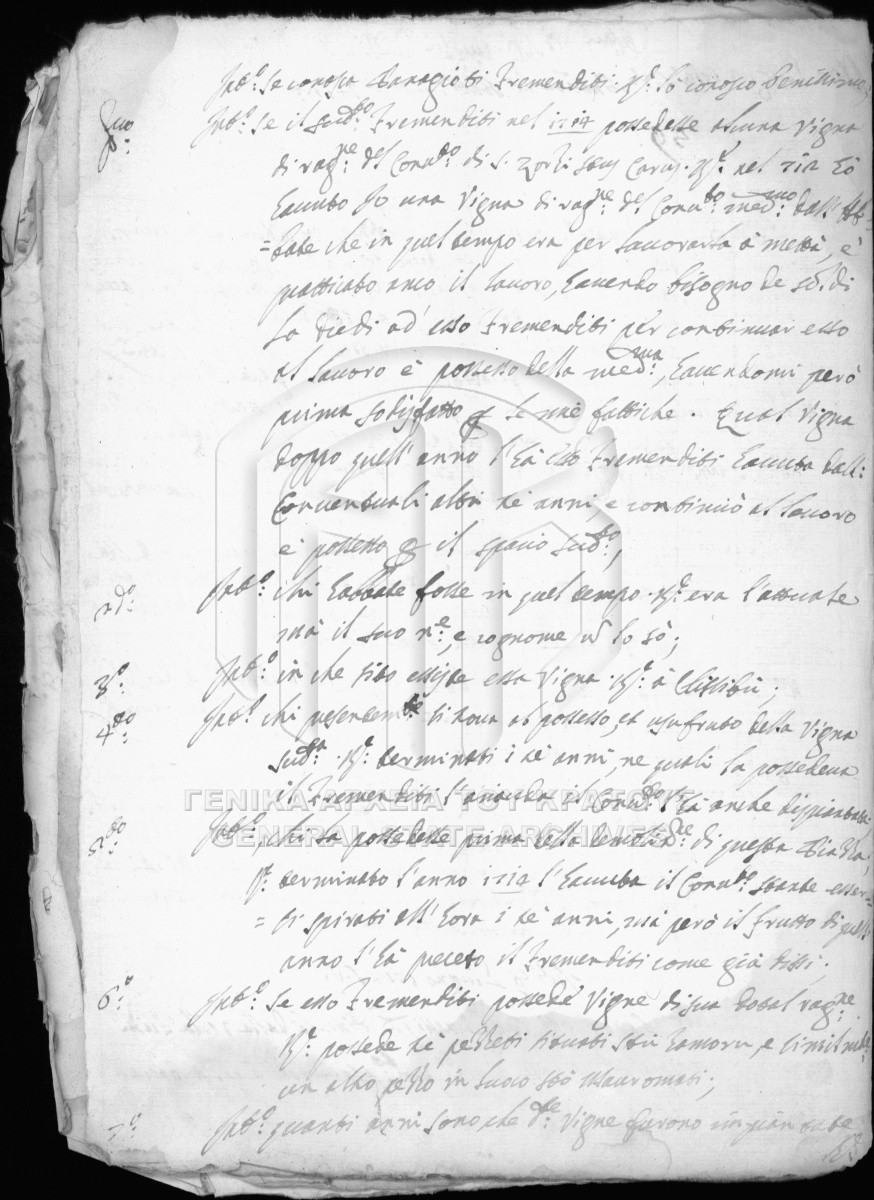 Int.º se conosca Panagioti Tremenditi. R.e lo conosco benissimo,
P.mo Int.º se il sud.to Tremenditi nel 1714 possedesse alcuna Vigna
di rag.ne del Conv.to di S. Zorzi R.e nel 714 hò
havuto Io una Vigna di rag.ne del Conv.to med.mo dall' Ab=
=bate che in quel tempo era per lavorarla à mettà, è
patticato anco il lavoro, havendo bisogno de sol.di
la diedi ad' esso Tremenditi per continuar esso
al lavoro è possesso della med.ma, havendomi però
prima sodisfatto p le mie fattiche. Qual Vigna
doppo quell' anno l'hà esso Tremenditi havuta dalli
Conventuali altri trè anni, e continuò al lavoro
e possesso p il spacio sud.to,
2.do Int.º chi l'abbate fosse in quel tempo. R.e era l'attuale
mà il suo n.e, e cognome nō lo sò;
3.º Int.º in che sito essiste essa Vigna. R.e à
4.to Int.º chi presentem.te si trova al possesso, et usufruto della Vigna
sud.ta. R.e terminati i trè anni, ne quali la possedeva
il Tremenditi l'avanda il Conv.to l'hà anche dispiantata,
5.to Int.º chi la possedesse prima della di questa Piazza,
R.e terminato l'anno 1714 l'havuta il Conv.to stante esser=
=si spirati all'hora i trè anni, mà però il frutto di quell'
anno l'hà preceto il Tremenditi come già dissi;
6.º Int.º se esso Tremenditi possedè Vigne di sua dotal rag.ne
R.e possede trè pezzeti situati stù Zamoru, e similm.te
un altro pezzo in luoco stò Mavromati;
7.º Int.º quanti anni sono, che d.te Vigne furono impiantate
ΓΕΝΙΚΑ ΑΡΧΕΙΑ ΤΟΥ ΚΡΑΤΟΥΣ
GENERAL STATE ARCHIVES